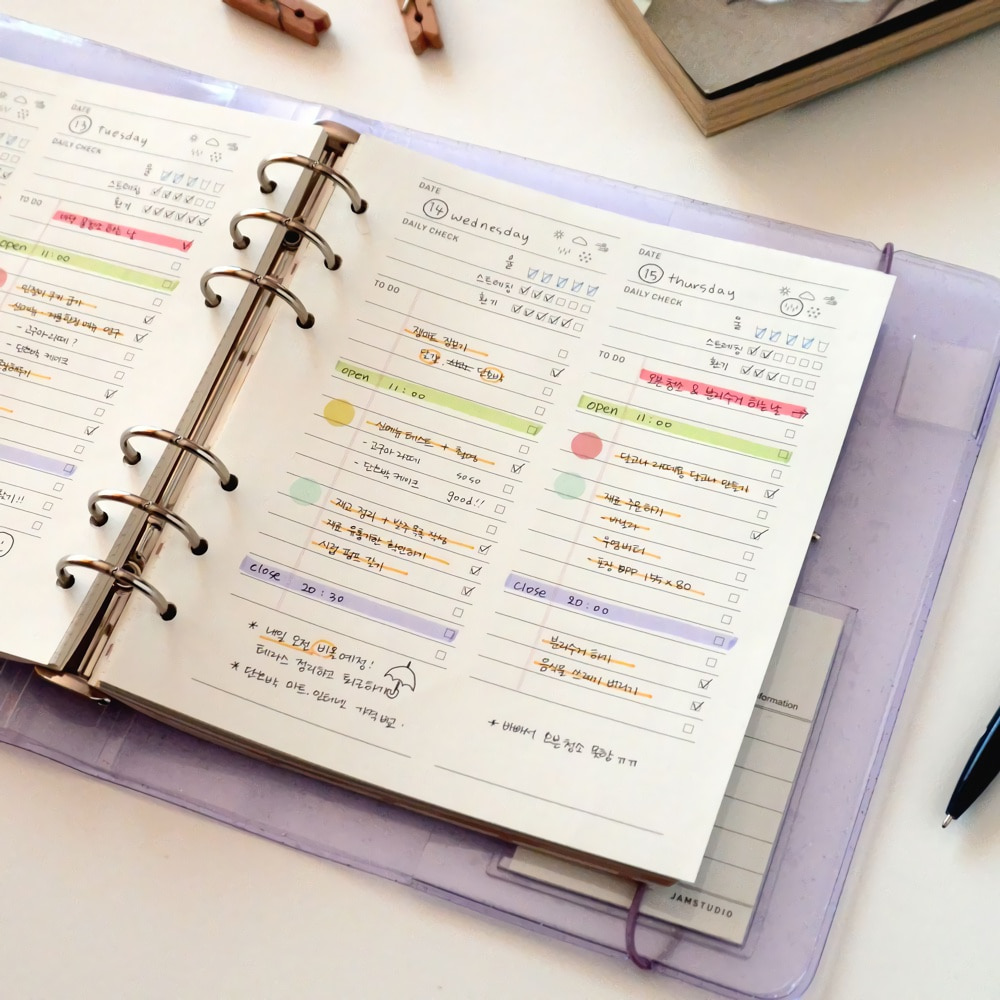 DATE
13 Tuesday
DAILY CHECK
물
스트레칭
환기
TO DO
open 11:00
- 고구마 라떼?
- 단호박 케이크
DATE
14 wednesday
DAILY CHECK
물
스트레칭
환기
TO DO
잼마트 장보기
단호박
open 11:00
신메뉴 테스트 + 촬영
- 고구마 라떼 soso
- 단호박 케이크 good!!
재고 정리 + 발주 목록 작성
재료 유통기한 확인하기
시럽 펌프 갈기
close 20:30
* 내일 오전 비올 예정!
테라스 정리하고 퇴근하기
* 단호박 마트, 인터넷 가격 비교.
DATE
15 thursday
DAILY CHECK
물
스트레칭
환기
TO DO
오븐 청소 & 분리수거 하는 날
open 11:00
달고나 라떼용 달고나 만들기
재료 주문하기
- 바닐라
- 우영버터
- 포장 OPP 155 x 80
close 20:00
분리수거 하기
음식물 쓰레기 버리기
* 바빠서 오븐청소 못함 ㅠㅠ
JAMSTUDIO